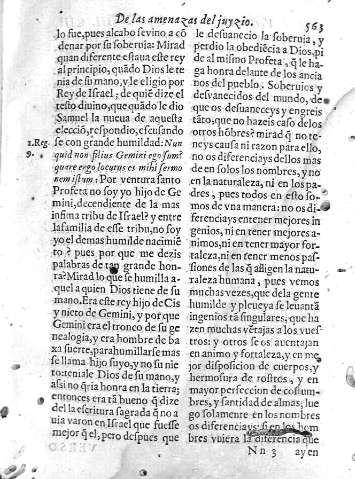 De las amenazas del juyzio.
563
lo fue, pues alcabo se vino a cõ
denar por su soberuia: Mirad
quan diferente estaua este rey
al principio, quãdo Dios le te
nia de su mano, y le eligio por
Rey de Israel; de quiẽ dize el
testo diuino, que quãdo le dio
Samuel la nueua de aquesta
elecciõ, respondio, escusando
1. Reg.
se con grande humildad: Nun
9.
quid non filius Gemini ego sum?
quare ergo locutus es mihi sermo
nem istum: Por ventura santo
Profeta no soy yo hijo de Ge
mini, decendiente de la mas
infima tribu de Israel? y entre
la familia de esse tribu, no soy
yo el de mas humilde nacimiẽ
to? pues por que me dezis
palabras de tan grande hon
ra? Mirad lo que se humilla a-
quel a quien Dios tiene de su
mano. Era este rey hijo de Cis
y nieto de Gemini, y por que
Gemini era el tronco de su ge
nealogia, y era hombre de ba
xa suerte, para humillarse mas
se llama hijo suyo, y no su nie
to: teniale Dios de su mano, y
assi no q̃ria honra en la tierra;
entonces era tã bueno q̃ dize
del la escritura sagrada q̃ no a
uia varon en Israel que fuesse
mejor q̃ el; pero despues que
le desuanecio la soberuia, y
perdio la obediẽcia a Dios, pi
de al mismo Profeta, q̃ le ha-
ga honra delante de los ancia
nos del pueblo. Soberuios y
desuanecidos del mundo, de
que os desuaneceys y engreis
tãto, que no hazeis caso de los
otros hõbres? mirad q̃ no te-
neys causa ni razon para ello,
no os diferenciays dellos mas
de en solos los nombres, y no
en la naturaleza, ni en los pa-
dres, pues todos en esto so-
mos de vna manera: no os di-
ferenciays en tener mejores in
genios, ni en tener mejores a-
nimos, ni en tener mayor for-
taleza, ni en tener menos pas-
siones de las q̃ afligen la natu-
raleza humana, pues vemos
muchas vezes, que de la gente
humilde y pleueya se leuantã
ingenios tã singulares, que ha
zen muchas vẽtajas a los vues
tros: y otros se os auentajan
en animo y fortaleza, y en me
jor disposicion de cuerpos, y
hermosura de rostros, y en
mayor perfeccion de costum-
bres, y santidad de almas; lue
go solamente en los nombres
os diferenciays: si en los hom
bres vuiera la diferencia que
Nn 3
ayen